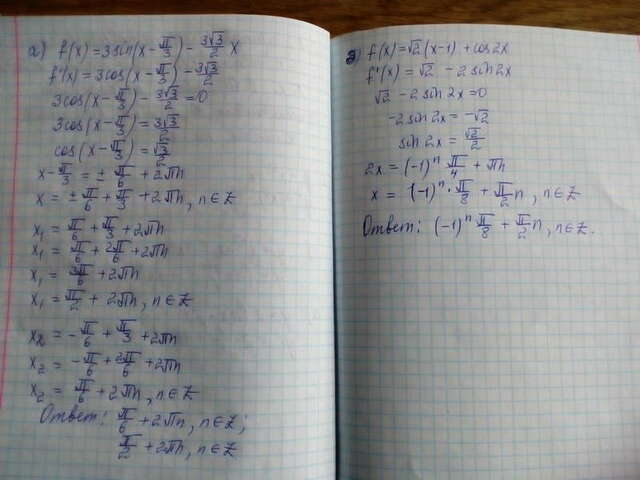 а) f(x) = 3sin(x - π/3) - 3√3/2 x
f'(x) = 3cos(x - π/3) - 3√3/2
3cos(x - π/3) - 3√3/2 = 0
3cos(x - π/3) = 3√3/2
cos(x - π/3) = √3/2
x - π/3 = ± π/6 + 2πn
x = ± π/6 + π/3 + 2πn, n∈Z
x₁ = π/6 + π/3 + 2πn
x₁ = π/6 + 2π/6 + 2πn
x₁ = 3π/6 + 2πn
x₁ = π/2 + 2πn, n∈Z
x₂ = -π/6 + π/3 + 2πn
x₂ = -π/6 + 2π/6 + 2πn
x₂ = π/6 + 2πn, n∈Z
Ответ: π/6 + 2πn, n∈Z;
π/2 + 2πn, n∈Z
f(x) = √2(x-1) + cos2x
f'(x) = √2 - 2sin2x
√2 - 2sin2x = 0
-2sin2x = -√2
sin2x = √2/2
2x = (-1)ⁿ π/4 + πn
x = (-1)ⁿ · π/8 + π/2 n, n∈Z
Ответ: (-1)ⁿ π/8 + π/2 n, n∈Z.